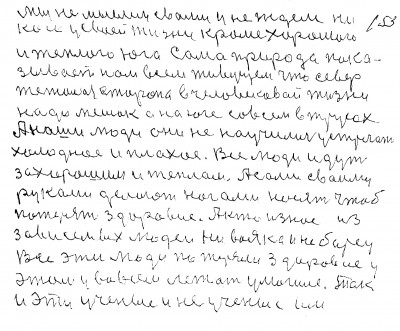 мы не милин свами и не ждем ни 153
кои у своей жизни кроме хорошого
и теплого юга Сама природа пока-
зывает нам всем живущем что север
тежолая сторона в человековай жизни
надо мешок а на юге совсем в трусах
А наши люди они не научились устречат
холодное и плохое. Все люди идут
за хорошим и теплам. А сами своими
руками делают ногами носят чтоб
потерят здоровие. А кто изнас из
зависемых людей ни вояка и не барец
Все эти люди потеряли здоровие у
этом у вовсем лежат умогиле. Так
и эти ученые и не ученые им